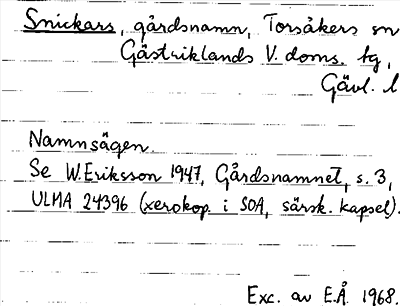 Snickars, gårdsnamn, Torsåkers sn
Gästriklands V. doms. tg,
Gävl. l
Namnsägen.
Se W. Eriksson 1947, Gårdsnamnet, s. 3,
ULMA 24396 (xerokop. i SOA, särsk. kapsel).
Exc. av E.Å. 1968.